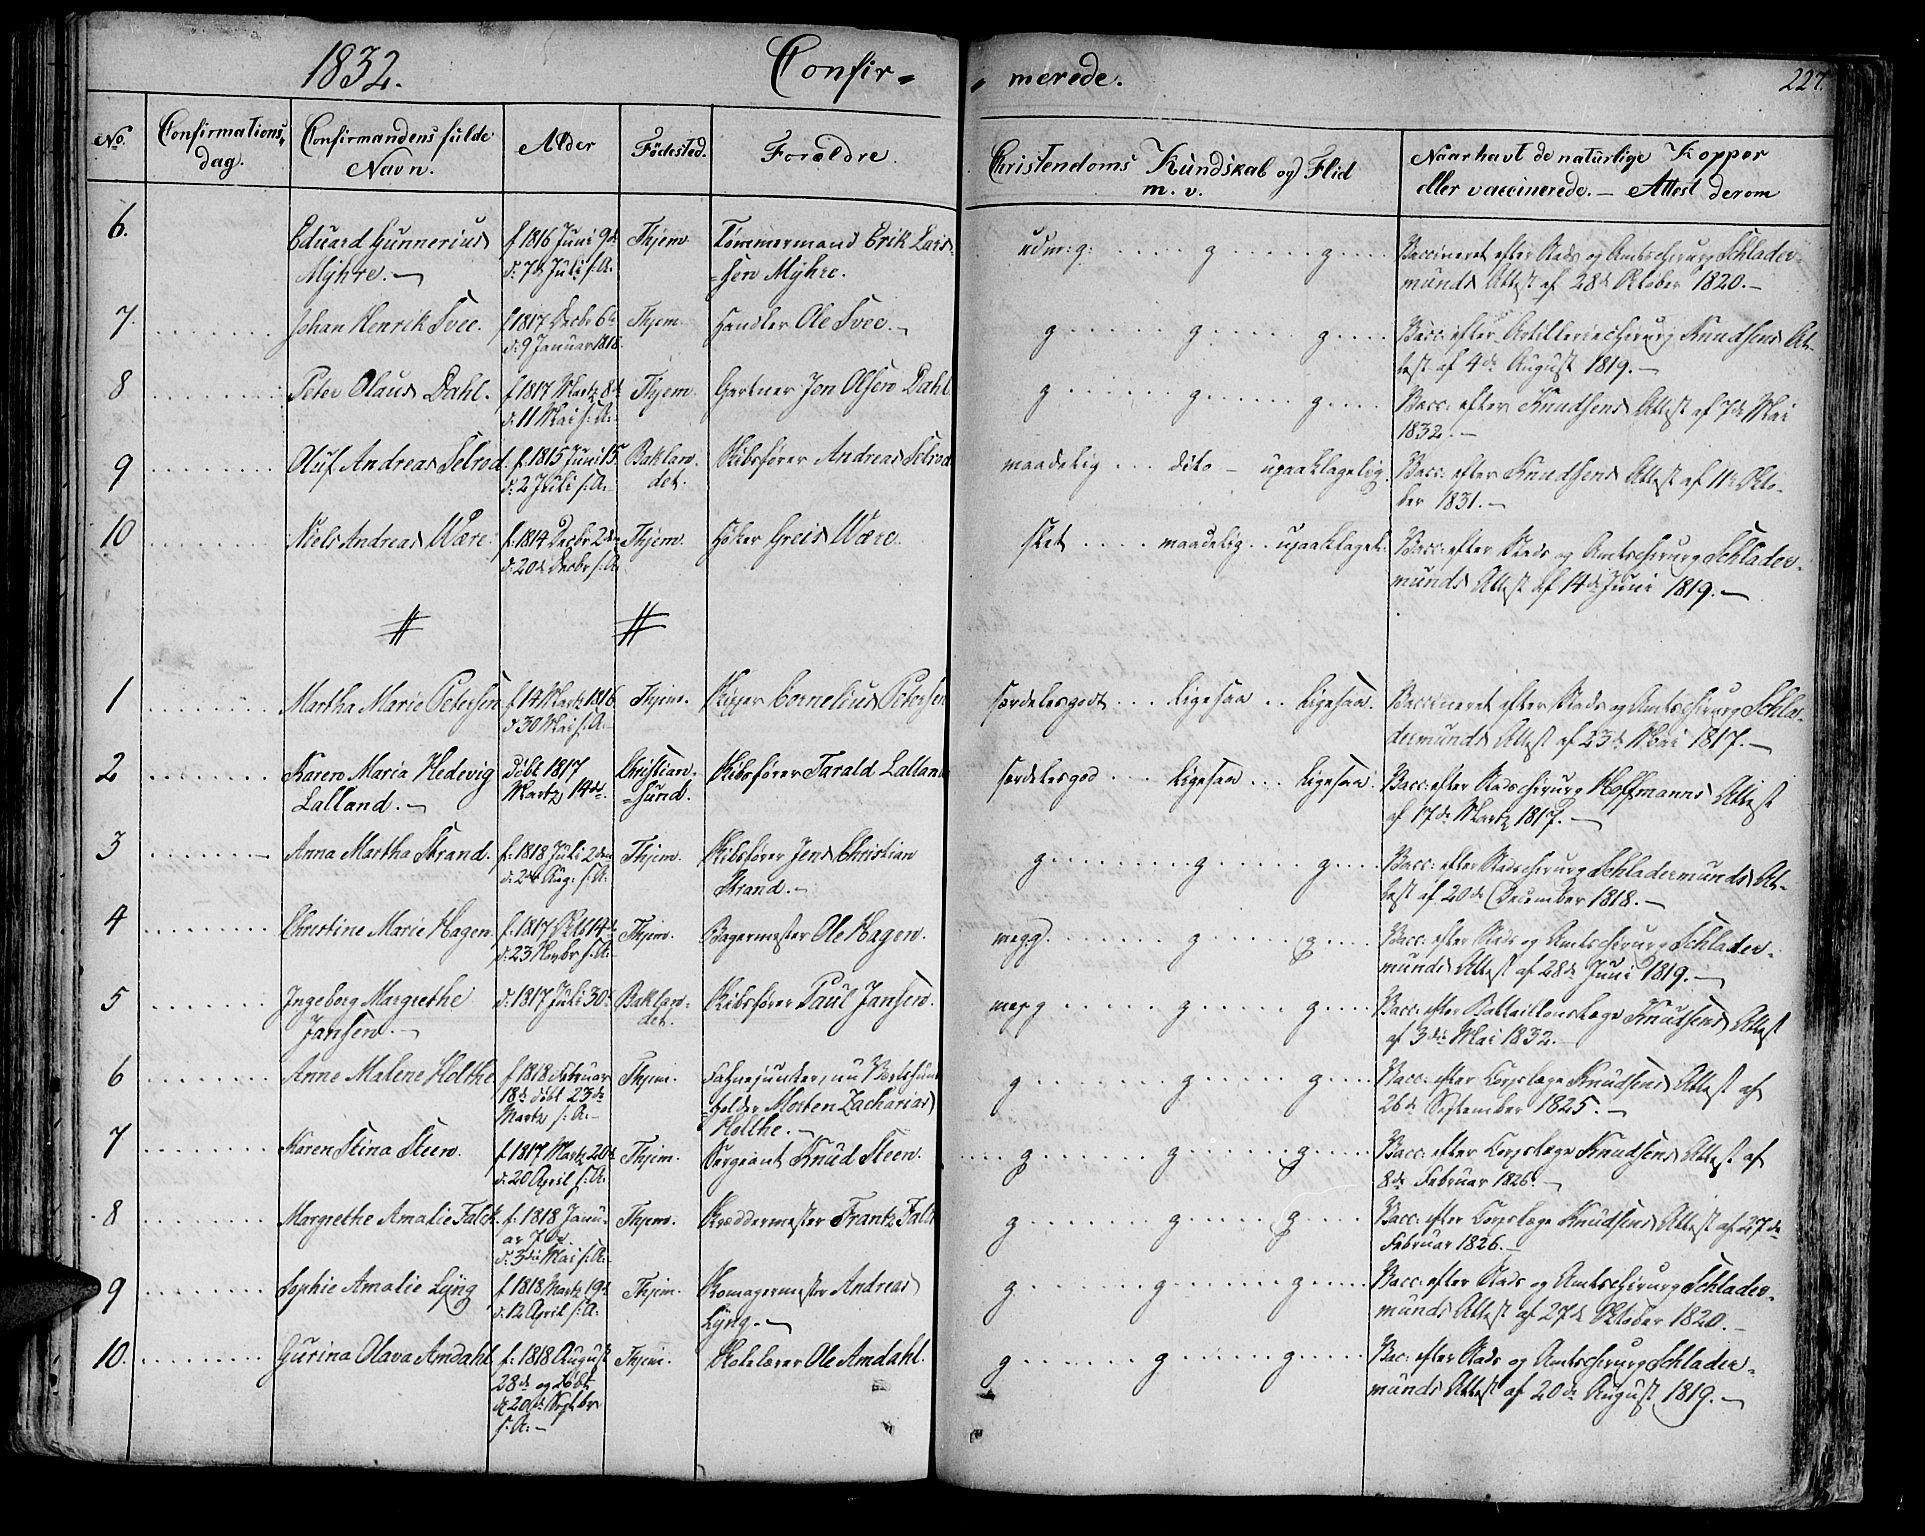 1832. Confir- merede. 227.
No. Confirmations, dag. Confirmandens fulde Navn. Alder Födested. Foreldre. Christendoms Kundskab og Flid m. v. Naar havt de naturlige Kopper eller vaccinerede. - Attest derom
6. Eduard Gunnerius f. 1816 Juni 9de Thjem. Tömmermand Erik Lars- udm: g. g g Vaccineret efter Stads og Amtschirurg Schlader-
Myhre. d. 7de Juli s. A. -sen Myhre. munds Attest af 28de Oktober 1820.
7. Johan Henrik Svee. f. 1817 Decbr 6te Thjem. Handler Ole Svee. g g g Vacc: efter Artilleriechirurg Knudsens At-
d: 9 Januar 1818. test af 4de August 1819.
8 Peter Olaus Dahl. f. 1817 Martz 8de Thjem Gartner Jon Olsen Dahl g g g Vacc: efter Knudsens Attest af 7de Mai
d: 11 Mai s. A. 1832.
9 Oluf Andreas Selrod f. 1815 Juni 15 Baklan- Skibsförer Andreas Selrod maadelig dito - upaaklagelig. Vacc: efter Knudsens Attest af 11te Okto-
d: 2 Juli s. A. det. ber 1831.
10 Niels Andreas Wære. f. 1814 Decbr 2den Thjem. Höker Greis Wære. slet maadelig upaaklagel: Vacc: efter Stads og Amtschirurg Schlader-
d: 20de Decbr s. A. munds Attest af 14de Juni 1819.
1 Martha Marie Petersen f. 14 Martz 1816 Thjem. Skipper Cornelius Petersen særdelesgodt ligesaa ligesaa. Vaccineret efter Stads og Amtschirurg Schla-
d. 30 Mai s. A. dermunds Attest af 23de Mai 1817.
2 Karen Maria Hedevig Döbt 1817 Christian- Skibsförer Tarald Lalland særdelesgod ligesaa ligesaa. Vacc: efter Stadschirurg Hoffmanns Attest
Lalland. Martz 14de. -sund. af 17de Martz 1817.
3 Anna Martha Strand. f. 1818 Juli 2den Thjem. Skibsförer Jens Christian g g g Vacc: efter Stadschirurg Schladermunds At-
d. 24 Aug: s. A. Strand. test af 20de December 1818.
4 Christine Marie Hagen. f. 1817 Okt 19de Thjem. Bagermester Ole Hagen. meg:g g g Vacc: efter Stads og Amtschirurg Schlader-
d. 23 Novbr s. A. munds Attest af 28de Juni 1819.
5 Ingeborg Margrethe d. 1817 Juli 30te Baklan- Skibsförer Paul Jansen. meg:g g g Vacc: efter Battaillonslæge Knudsens Attest
Jansen. det. af 3die Mai 1832.
6 Anne Malene Holthe f. 1818 Februar Thjem. Fahnejunker, nu g g g Vacc: efter Corpslæge Knudsens Attest af
18de döbt 23de holder Morten Zacharias 26de September 1825.
Martz s. A. Holthe.
7 Karen Stina Steen. f. 1817 Martz 20de Thjem. Sergeant Knud Steen. g g g Vacc: efter Corpslæge Knudsens Attest af
d: 20 April s. A. 8de Februar 1826.
8 Margrethe Amalie Falck. f. 1818 Janu- Thjem. Skreddermester Frantz Falck g g g Vacc: efter Corpslæge Knudsens Attest af 27de
ar 7de. Februar 1826.
d. 3die Mai s. A:
9 Sophie Amalie Lyng f. 1818 Martz 19de Thjem. Skomagermester Andreas g g g Vacc: efter Stads og Amtschirurg Schlader-
d. 12 April s. A. Lyng. munds Attest af 27de Oktober 1820.
10. Gurina Olava Amdahl f. 1818 August Thjem. Skolelærer Ole Amdahl. g g g Vac: efter Stads og Amtschirurg Schlader-
28de og döbt munds Attest af 20de August 1819.
d. 20de Septbr
s. A.